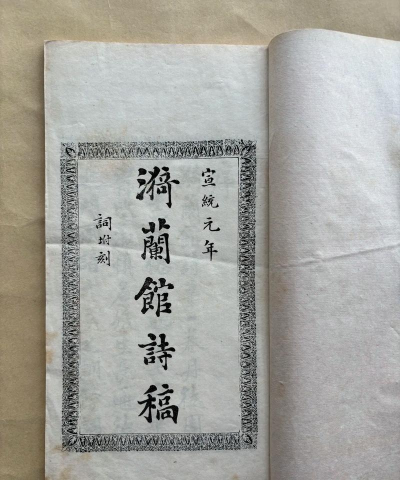 宣統元年
漪蘭館詩稿
詞坿刻